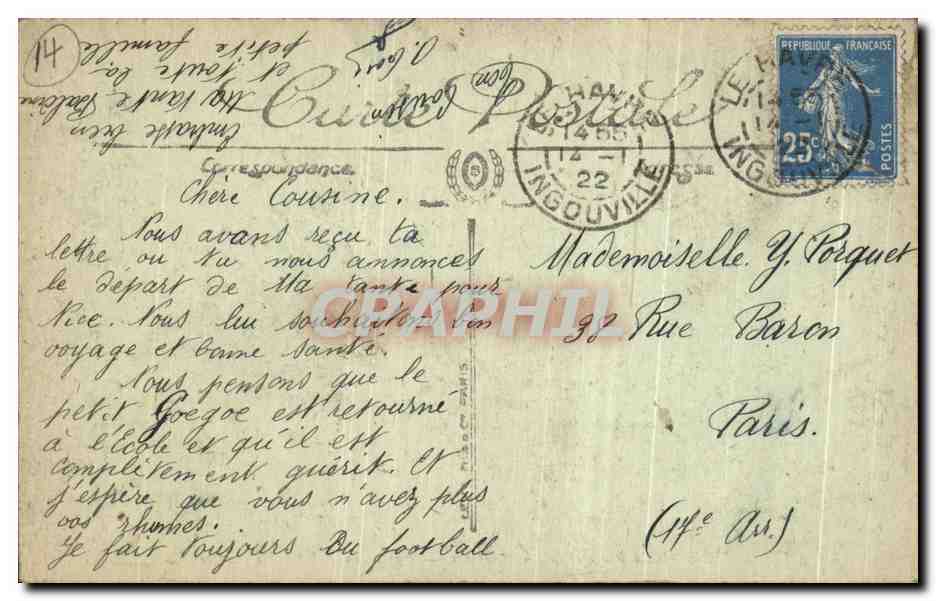 14
Embrasse bien
Ma tante Balzine
et toute la
petite famille
ton Cousin
Carte Postale
Correspondance
Adresse
REPUBLIQUE FRANÇAISE
25c
POSTES
LE HAVRE
14 55
14 - 1
22
INGOUVILLE
LE HAVRE
14 55
14 - 1
INGOUVILLE
Chere Cousine.
Nous avons reçu ta
lettre ou tu nous annonces
le départ de Ma tante pour
Nice. Nous lui souhaitons bon
voyage et bonne santé.
Nous pensons que le
petit Goegoe est retourné
à l'école et qu'il est
complètement guérit. Et
j'espère que vous n'avez plus
vos rhumes.
Je fait toujours du football
Mademoiselle. Y. Porquet
98 Rue Baron
Paris.
(17e Arr)
PARIS
CRAPHIL